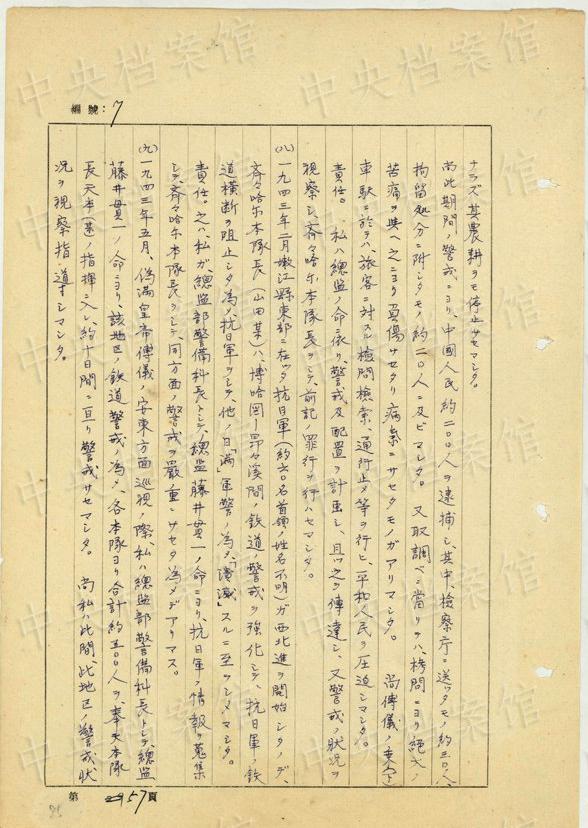 編號：7
ナラズ其農耕ヲモ停止サセマシタ。
尚此期間ノ警戒ニヨリ、中國人民約二〇〇人ヲ逮捕シ其中、検察庁ニ送ッタモノ約三〇人、
拘留処分ニ附シタモノ約二〇人ニ及ビマシタ。又取調ベニ當リテハ、拷問ニヨリ絶大ノ
苦痛ヲ與ヘ之ニヨリ負傷サセタリ病気ニサセタモノガアリマシタ。尚傳儀ノ乗下
車駅ニ於テハ、旅客ニ対スル検問検索、通行止メ等ヲ行ヒ、平和人民ヲ圧迫シマシタ。
責任。私ハ總監ノ命ニ依リ、警戒及配置ヲ計畫シ、且ツ之ヲ傳達シ、又警戒ノ状況ヲ
視察シ、斉々哈尔本隊長ヲシテ、前記ノ罪行ヲ行ハセマシタ。
(八)一九四三年二月嫩江縣東部ニ在ッタ抗日軍(約六〇名首領ノ姓名不明)ガ西北進ヲ開始シタノデ、
斉々哈尔本隊長(山田某)ハ、博哈岡—昂々溪間ノ鉄道ノ警戒ヲ強化シテ、抗日軍ノ鉄
道横断ヲ阻止シタ為メ、抗日軍ヲシテ、他ノ日「満」軍警ノ為メ、「潰滅」スルニ至ラシメマシタ。
責任。之ハ、私ガ總監部警備科長トシテ、總監藤井貫一ノ命ニヨリ、抗日軍ノ情報ヲ蒐集
シテ、斉々哈尔本隊長ヲシテ同方面ノ警戒ヲ嚴重ニサセタ為メデアリマス。
(九)一九四三年五月、偽満皇帝傳儀ノ安東方面巡視ノ際、私ハ總監部警備科長トシテ、總監
藤井貫一ノ命ニヨリ、該地区ノ鉄道警戒ノ為メ、各本隊ヨリ合計約三〇〇人ヲ、奉天本隊
長天本(甚)ノ指揮ニ入レ約十日間ニ亘リ警戒サセマシタ。尚私ハ此間、此地区ノ警戒状
況ヲ視察指導シマシタ。
第57頁
中央档案馆
中央档案馆
中央档案馆
中央档案馆
中央档案馆
中央档案馆
中央档案馆
中央档案馆